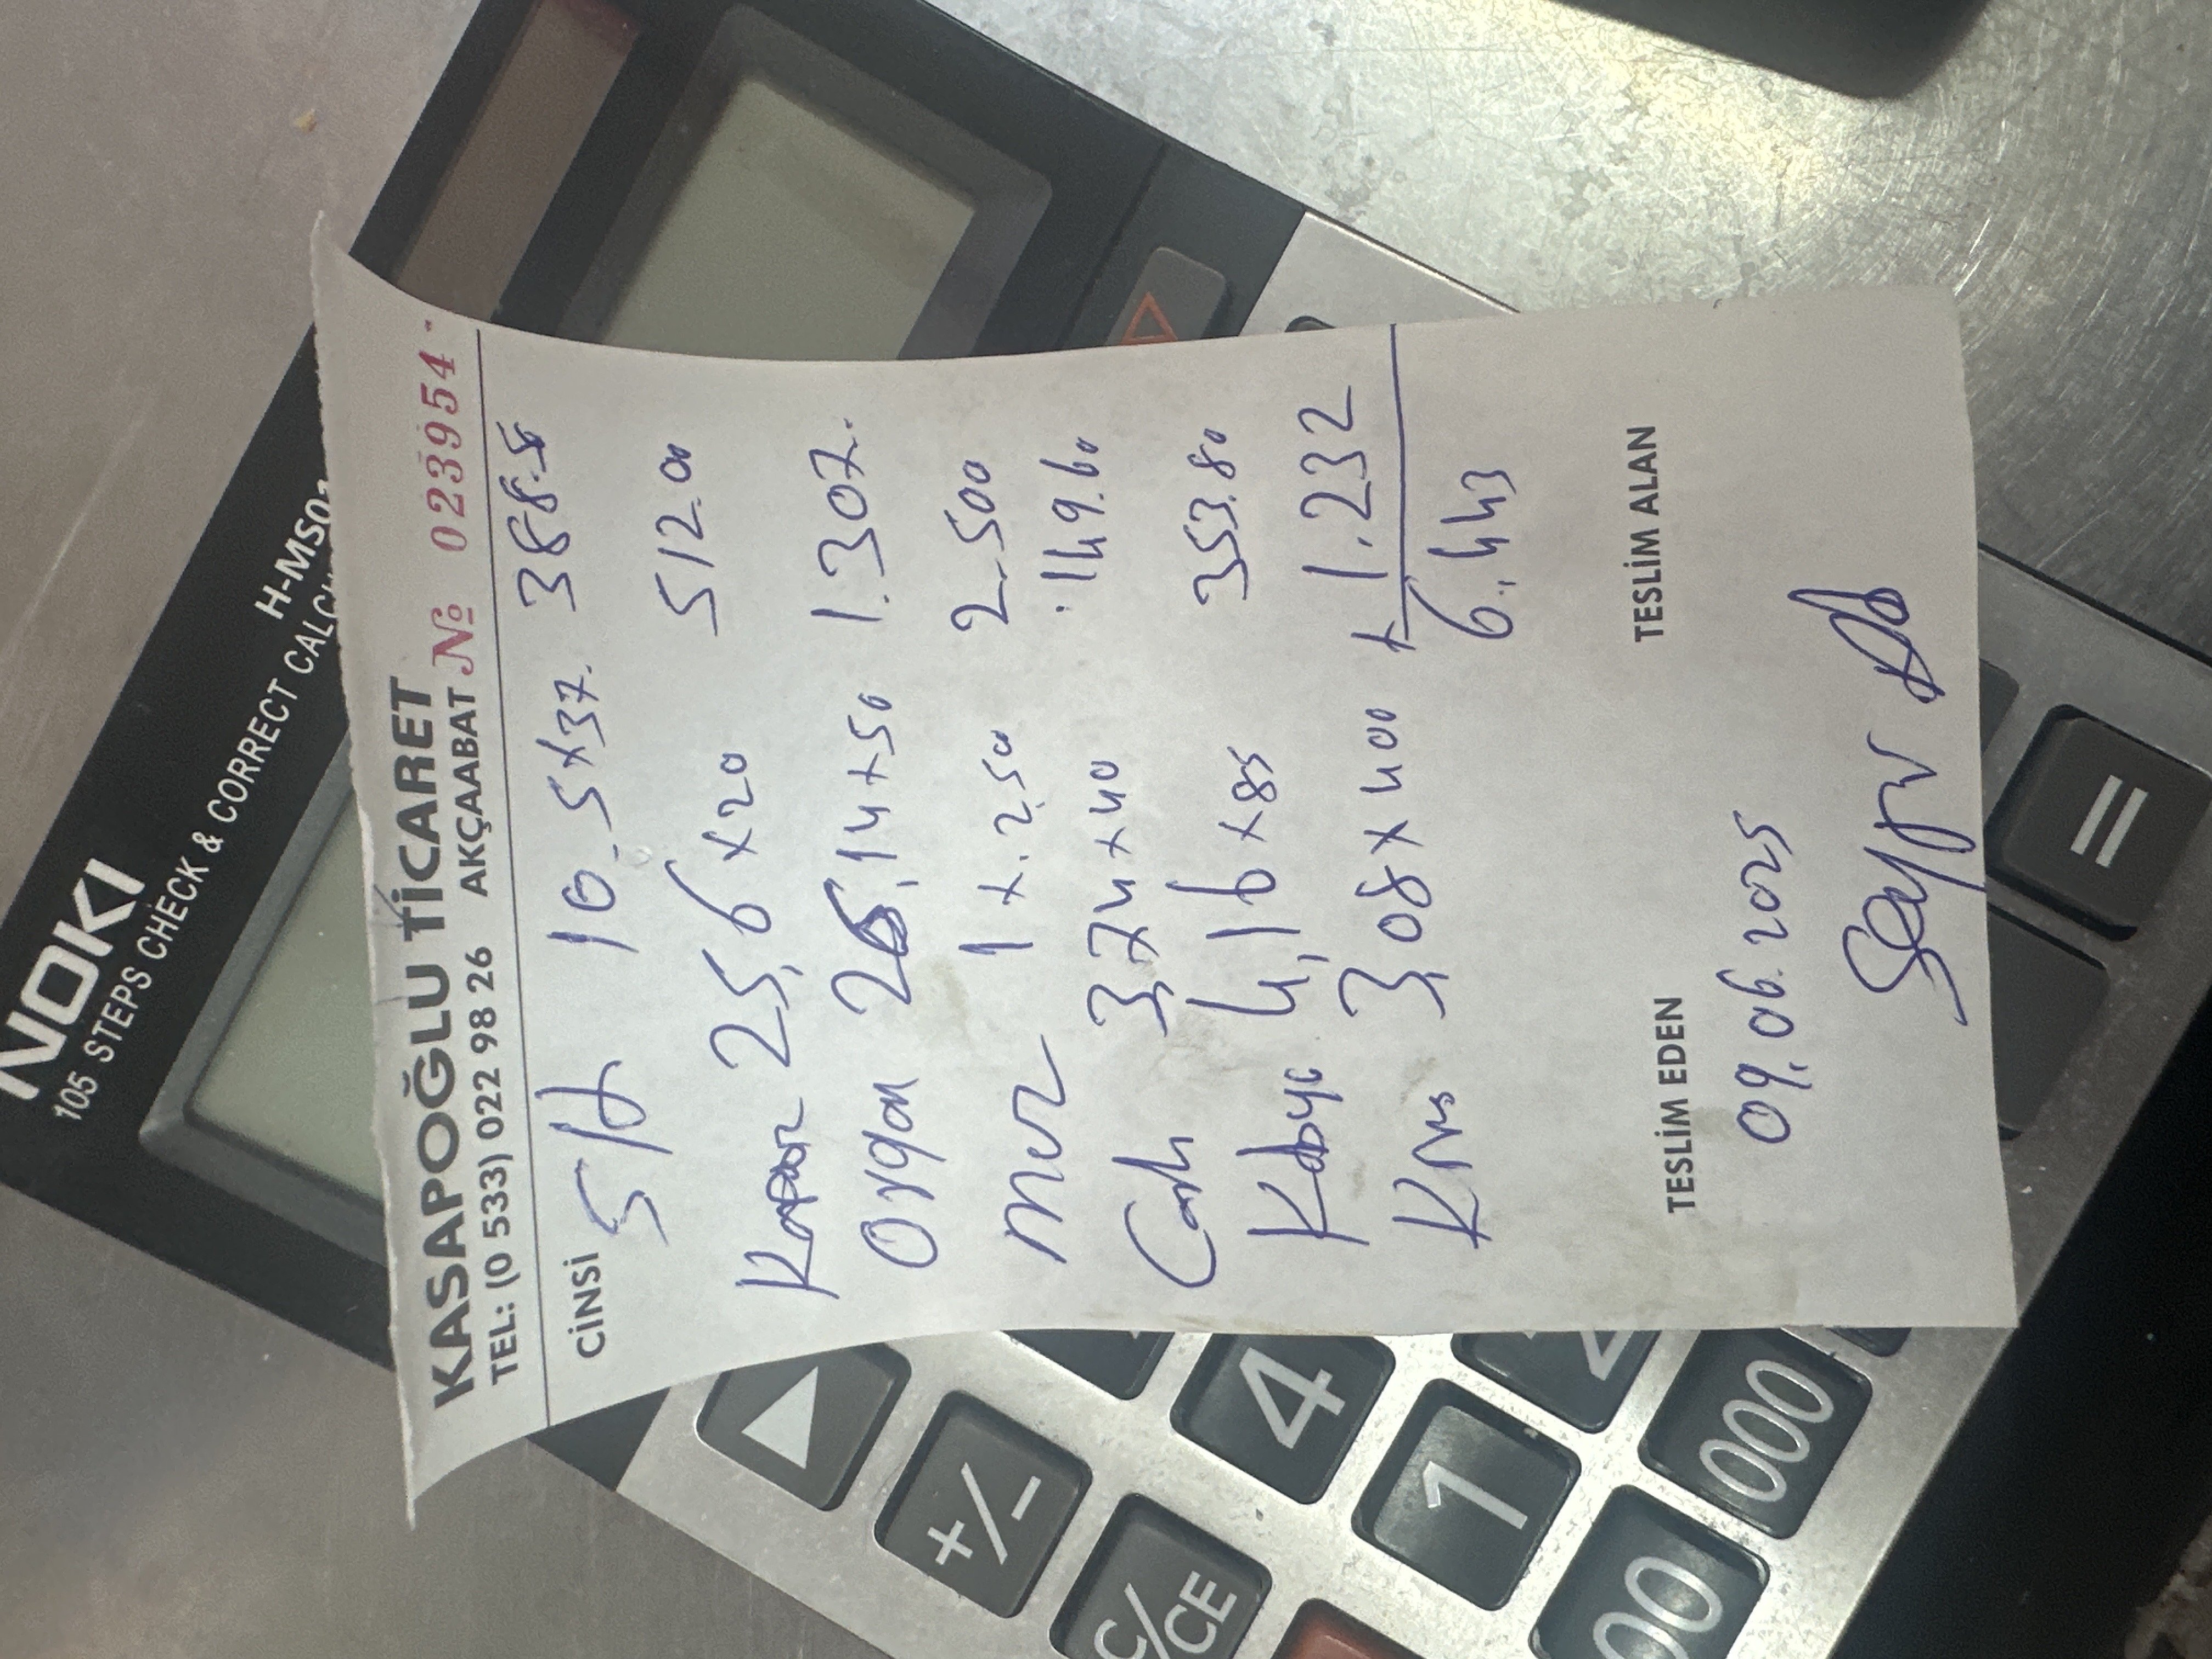 NOKI
H-MS01
105 STEPS CHECK & CORRECT CALCU
KASAPOĞLU TİCARET
TEL: (0 533) 022 98 26 AKÇAABAT № 023954
CİNSİ
S/d 10.5x37. 388.5
25,6x20 512.00
Organ 26,14x50 1.307.
1x.2.500 2.500
3,74x40 149.60
4,16x85 353.80
3,08x400 + 1.232
6.443
TESLİM EDEN TESLİM ALAN
09.06.2025
▲
+/-
C/CE
4
1
2
00
000
=